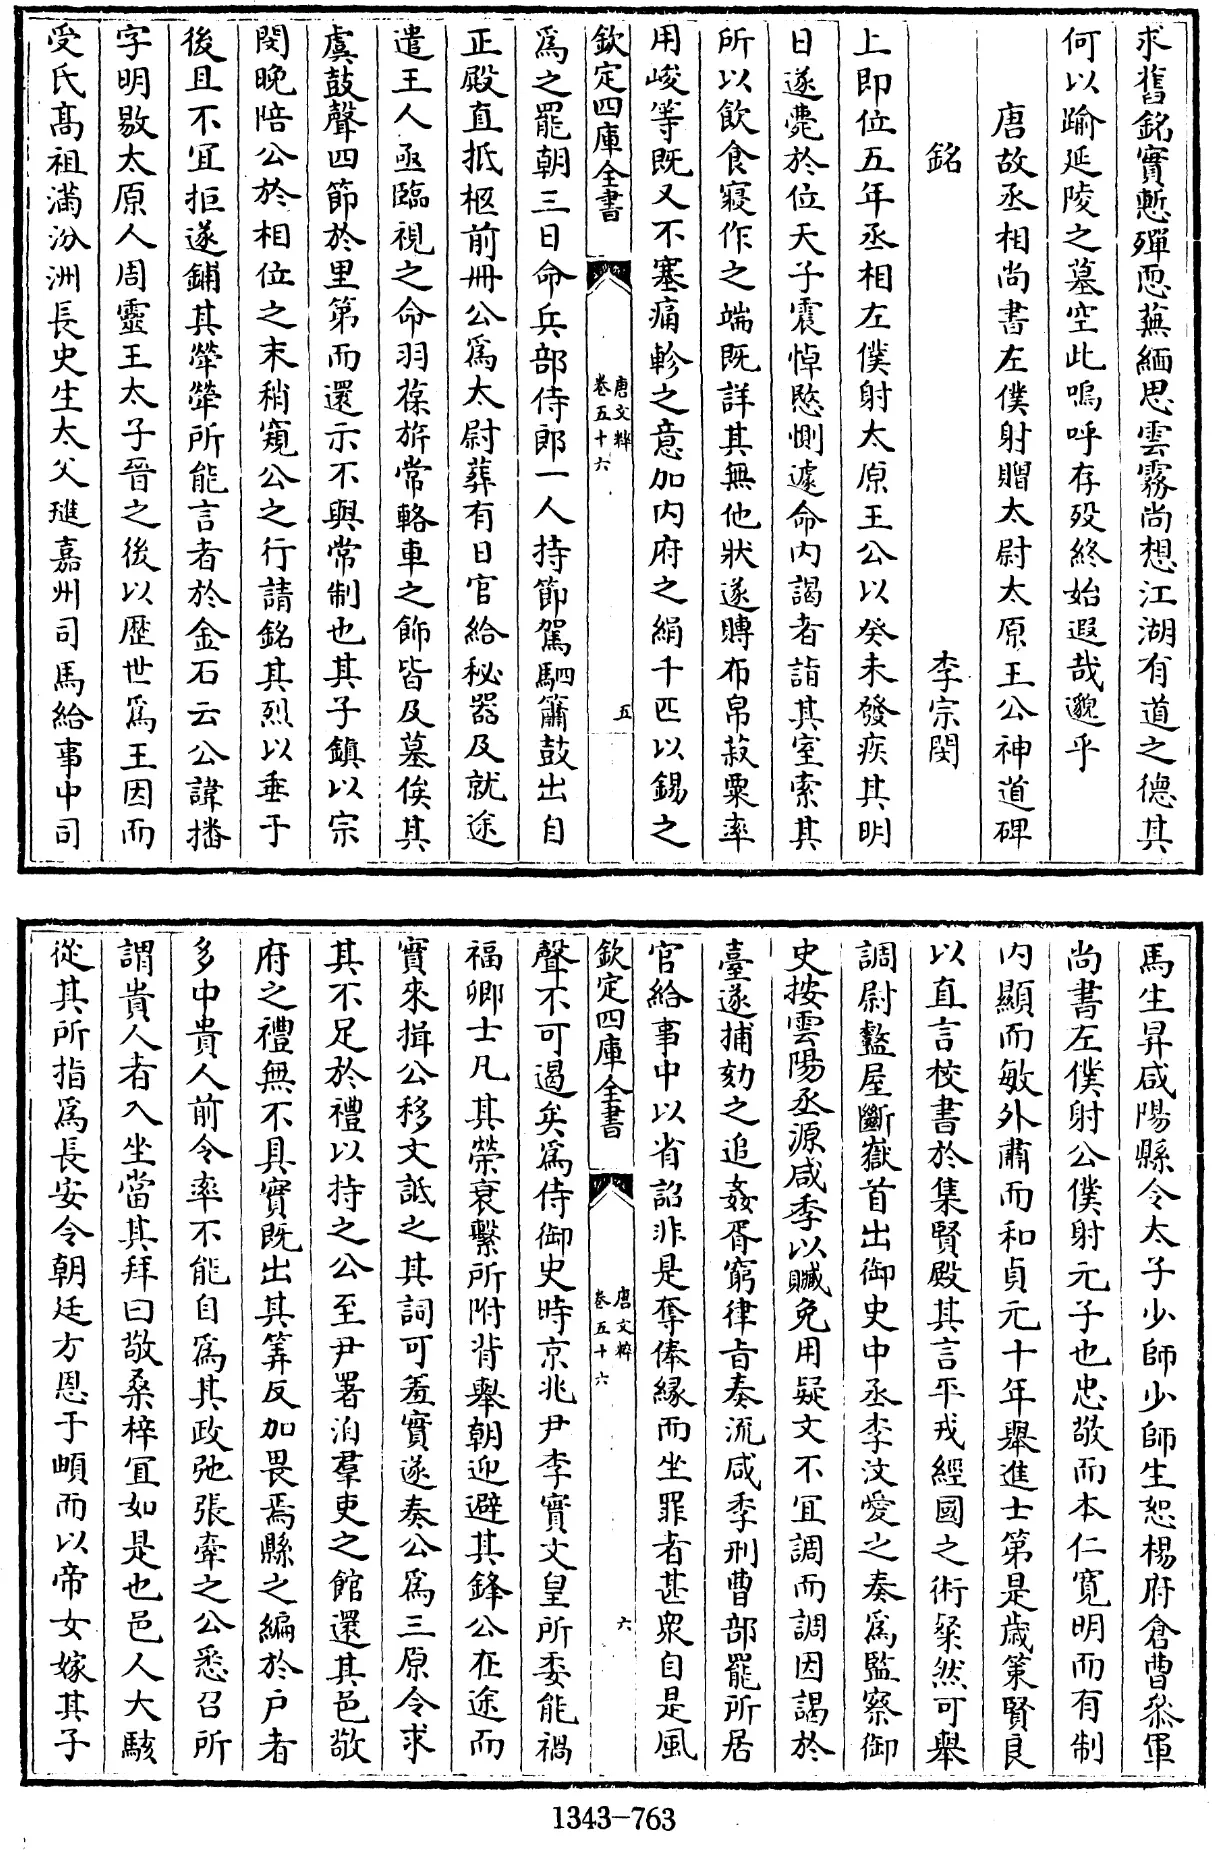 求舊銘實慙殫恧蕪緬思雲霧尚想江湖有道之德其
何以踰延陵之墓空此嗚呼存歿終始遐哉邈乎
唐故丞相尚書左僕射贈太尉太原王公神道碑
銘 李宗閔
上即位五年丞相左僕射太原王公以癸未發疾其明
日遂薨於位天子震悼愍惻遽命内謁者詣其室索其
所以飲食寢作之端既詳其無他狀遂賻布帛菽粟率
用峻等既又不塞痛軫之意加内府之絹千匹以錫之
欽定四庫全書 唐文粹 卷五十六 五
爲之罷朝三日命兵部侍郎一人持節駕駟簫鼓出自
正殿直抵柩前冊公爲太尉葬有日官給秘器及就途
遣王人亟臨視之命羽葆旂常輅車之飾皆及墓俟其
虞鼓聲四節於里第而還示不與常制也其子鎮以宗
閔晚陪公於相位之末稍窺公之行請銘其烈以垂于
後且不宜拒遂鋪其犖犖所能言者於金石云公諱播
字明敭太原人周靈王太子晉之後以歷世爲王因而
受氏髙祖滿汾洲長史生太父璡嘉州司馬給事中司
馬生昇咸陽縣令太子少師少師生恕楊府倉曹叅軍
尚書左僕射公僕射元子也忠敬而本仁寛明而有制
内顯而敏外肅而和貞元十年舉進士第是歲策賢良
以直言校書於集賢殿其言平戎經國之術粲然可舉
調尉盩厔斷嶽首出御史中丞李汶愛之奏爲監察御
史按雲陽丞源咸季以贓免用疑文不宜調而調因謁於
臺遂捕劾之追姦胥窮律旨奏流咸季刑曹部罷所居
官給事中以省詔非是奪俸緣而坐罪者甚衆自是風
欽定四庫全書 唐文粹 卷五十六 六
聲不可遏矣爲侍御史時京兆尹李實文皇所委能禍
福卿士凡其榮衰繫所附背舉朝迎避其鋒公在途而
實來揖公移文詆之其詞可羞實遂奏公爲三原令求
其不足於禮以持之公至尹署洎羣吏之館還其邑敬
府之禮無不具實既出其筭反加畏焉縣之編於户者
多中貴人前令率不能自爲其政弛張牽之公悉召所
謂貴人者入坐當其拜曰敬桑梓宜如是也邑人大駭
從其所指爲長安令朝廷方恩于頔而以帝女嫁其子
1343-763